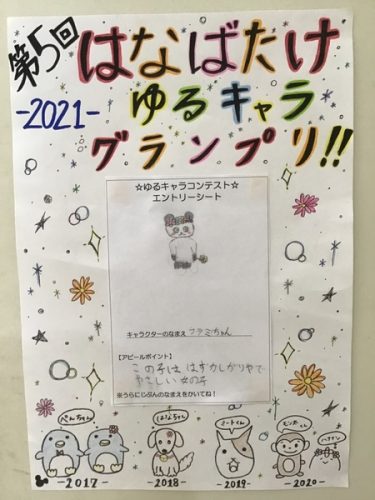 第5回
はなばたけ
-2021-
ゆるキャラ
グランプリ!!
☆ゆるキャラコンテスト☆
エントリーシート
キャラクターのなまえ フラミちゃん
【アピールポイント】
この子は はずかしがりやで
やさしい 女の子
※うらにじぶんのなまえをかいてね!
ぺんちゃん
はなちゃん
ハートくん
-2017-
-2018-
-2019-
-2020-